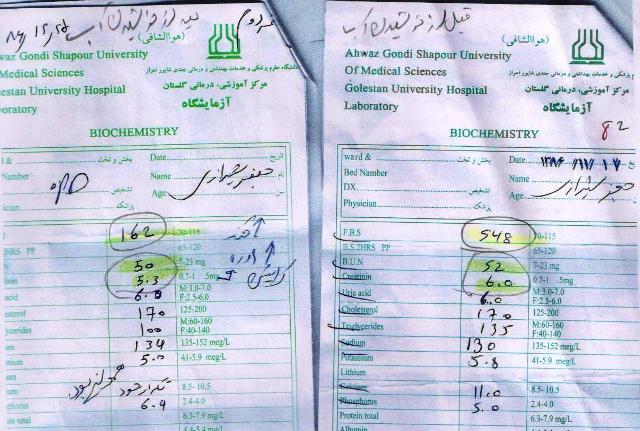 (هوالشافی)
Ahwaz Gondi Shapour University
دانشگاه علوم پزشکی و خدمات بهداشتی و درمانی جندی شاپور اهواز
Medical Sciences
مرکز آموزشی، درمانی گلستان
Golestan University Hospital
آزمایشگاه
BIOCHEMISTRY
بخش و تخت
Date
تاریخ
Number
Name
جعفر شیرازی
نام
OPD
تشخیص
Age
سن
پزشک
162 70-115
B.S.2HRS PP 65-120
50 7-23 mg
5.3 0.7-1 .5mg
acid 6.0 M:3.0-7.0
F:2.5-6.0
170 125-200
100 M:60-160
F:40-140
134 135-152 meg/L
5.0 41-5.9 meg/L
8.5- 10.5
6.4 2.4-4.0
total 6.3-7.9 mg/L
(هوالشافی)
Ahwaz Gondi Shapour University
دانشگاه علوم پزشکی و خدمات بهداشتی و درمانی جندی شاپور اهواز
Of Medical Sciences
مرکز آموزشی، درمانی گلستان
Golestan University Hospital
آزمایشگاه
Laboratory
82
BIOCHEMISTRY
ward & بخش و تخت
Date ۱۳۸۶/۱۱/۱۷
Bed Number
Name جعفر شیرازی
DX. تشخیص
Age
Physician پزشک
F.B.S 548 70-115
B.S.2HRS PP 65-120
B.U.N 52 7-23 mg
Creatinin 6.0 0.7-1 .5mg
Uric acid 6.0 M:3.0-7.0
F:2.5-6.0
Cholesterol 170 125-200
Triglycerides 135 M:60-160
F:40-140
Sodium 130 135-152 meg/L
Potassium 5.8 41-5.9 meg/L
Lithium
Calcium 11.0 8.5- 10.5
Phosphorus 5.0 2.4-4.0
Protein total 6.3-7.9 mg/L
Albumin